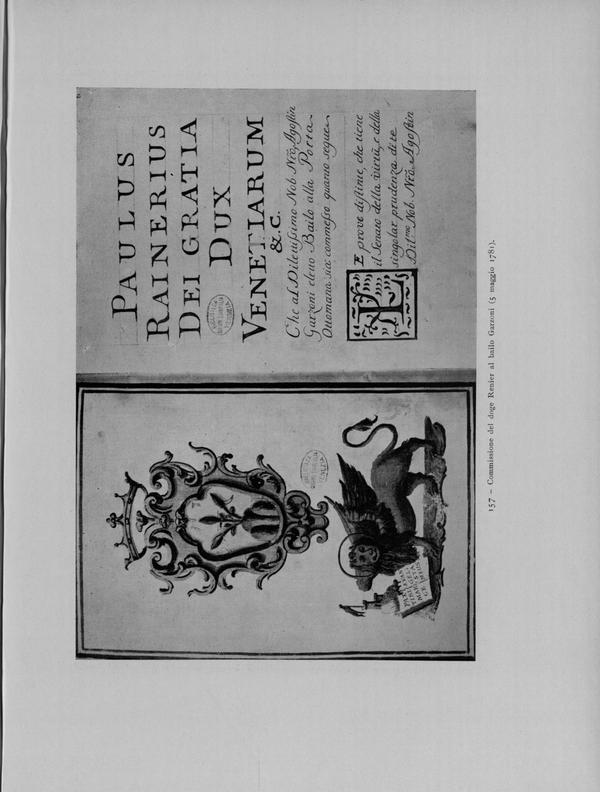 PAULUS
RAINERIUS
DEI GRATIA
DUX
VENETIARUM
&.C.
Che al Diletissimo Nob. Nrõ, Agostin
Garzoni eletto Bailo alla Porta
Ottomana sia commesso quanto segue.
LE prove distinte, che tiene
il Senato della virtù, e della
singolar prudenza di te
Dil.mo Nob. Nrõ, Agostin
PAX
TIBI
MAR
157 – Commissione del doge Renier al bailo Garzoni (5 maggio 1781).